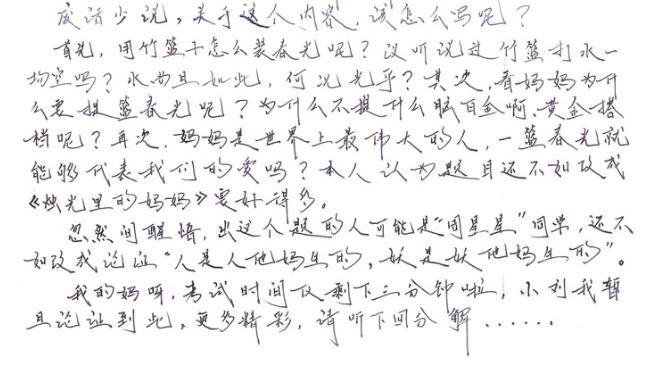 废话少说，关于这个内容，该怎么写呢？
首先，用竹篮子怎么装春光呢？没听说过竹篮打水一
场空吗？水尚且如此，何况光乎？其次，看妈妈为什
么要提篮春光呢？为什么不提什么脑白金啊黄金搭
档呢？再次，妈妈是世界上最伟大的人，一篮春光就
能够代表我们的爱吗？本人认为题目还不如改成
《烛光里的妈妈》要好得多。
忽然间醒悟，出这个题的人可能是“周星星”同学，还不
如改成论证“人是人他妈生的，妖是妖他妈生的”。
我的妈呀，考试时间仅剩下三分钟啦，小利我暂
且论证到此，更多精彩，请听下回分解……